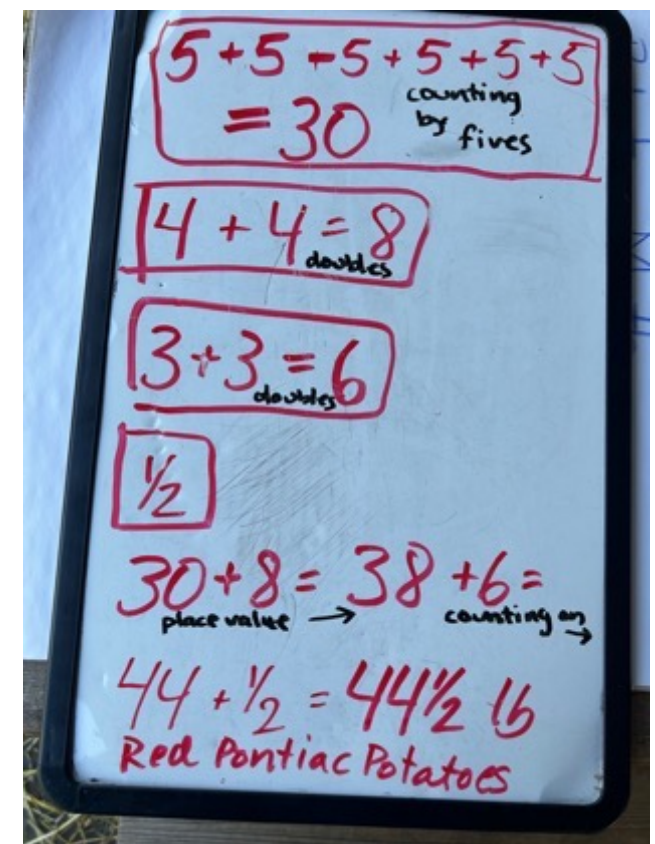 5 + 5 + 5 + 5 + 5 + 5
= 30 counting by fives
4 + 4 = 8
doubles
3 + 3 = 6
doubles
1/2
30 + 8 = 38 + 6 =
place value → counting on →
44 + 1/2 = 44 1/2 lb
Red Pontiac Potatoes